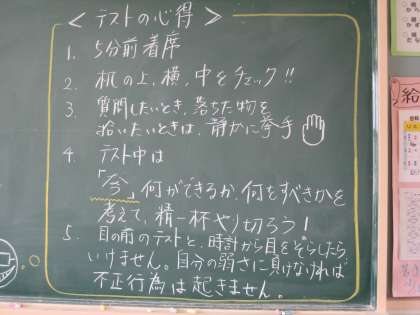 ＜テストの心得＞
1. 5分前着席
2. 机の上，横，中をチェック!!
3. 質問したいとき，落ちた物を
拾いたいときは，静かに挙手
4. テスト中は
「今」何ができるか，何をすべきかを
考えて，精一杯やり切ろう！
5. 目の前のテストと，時計から目をそらしたら
いけません。自分の弱さに負けなければ
不正行為は起きません。
給